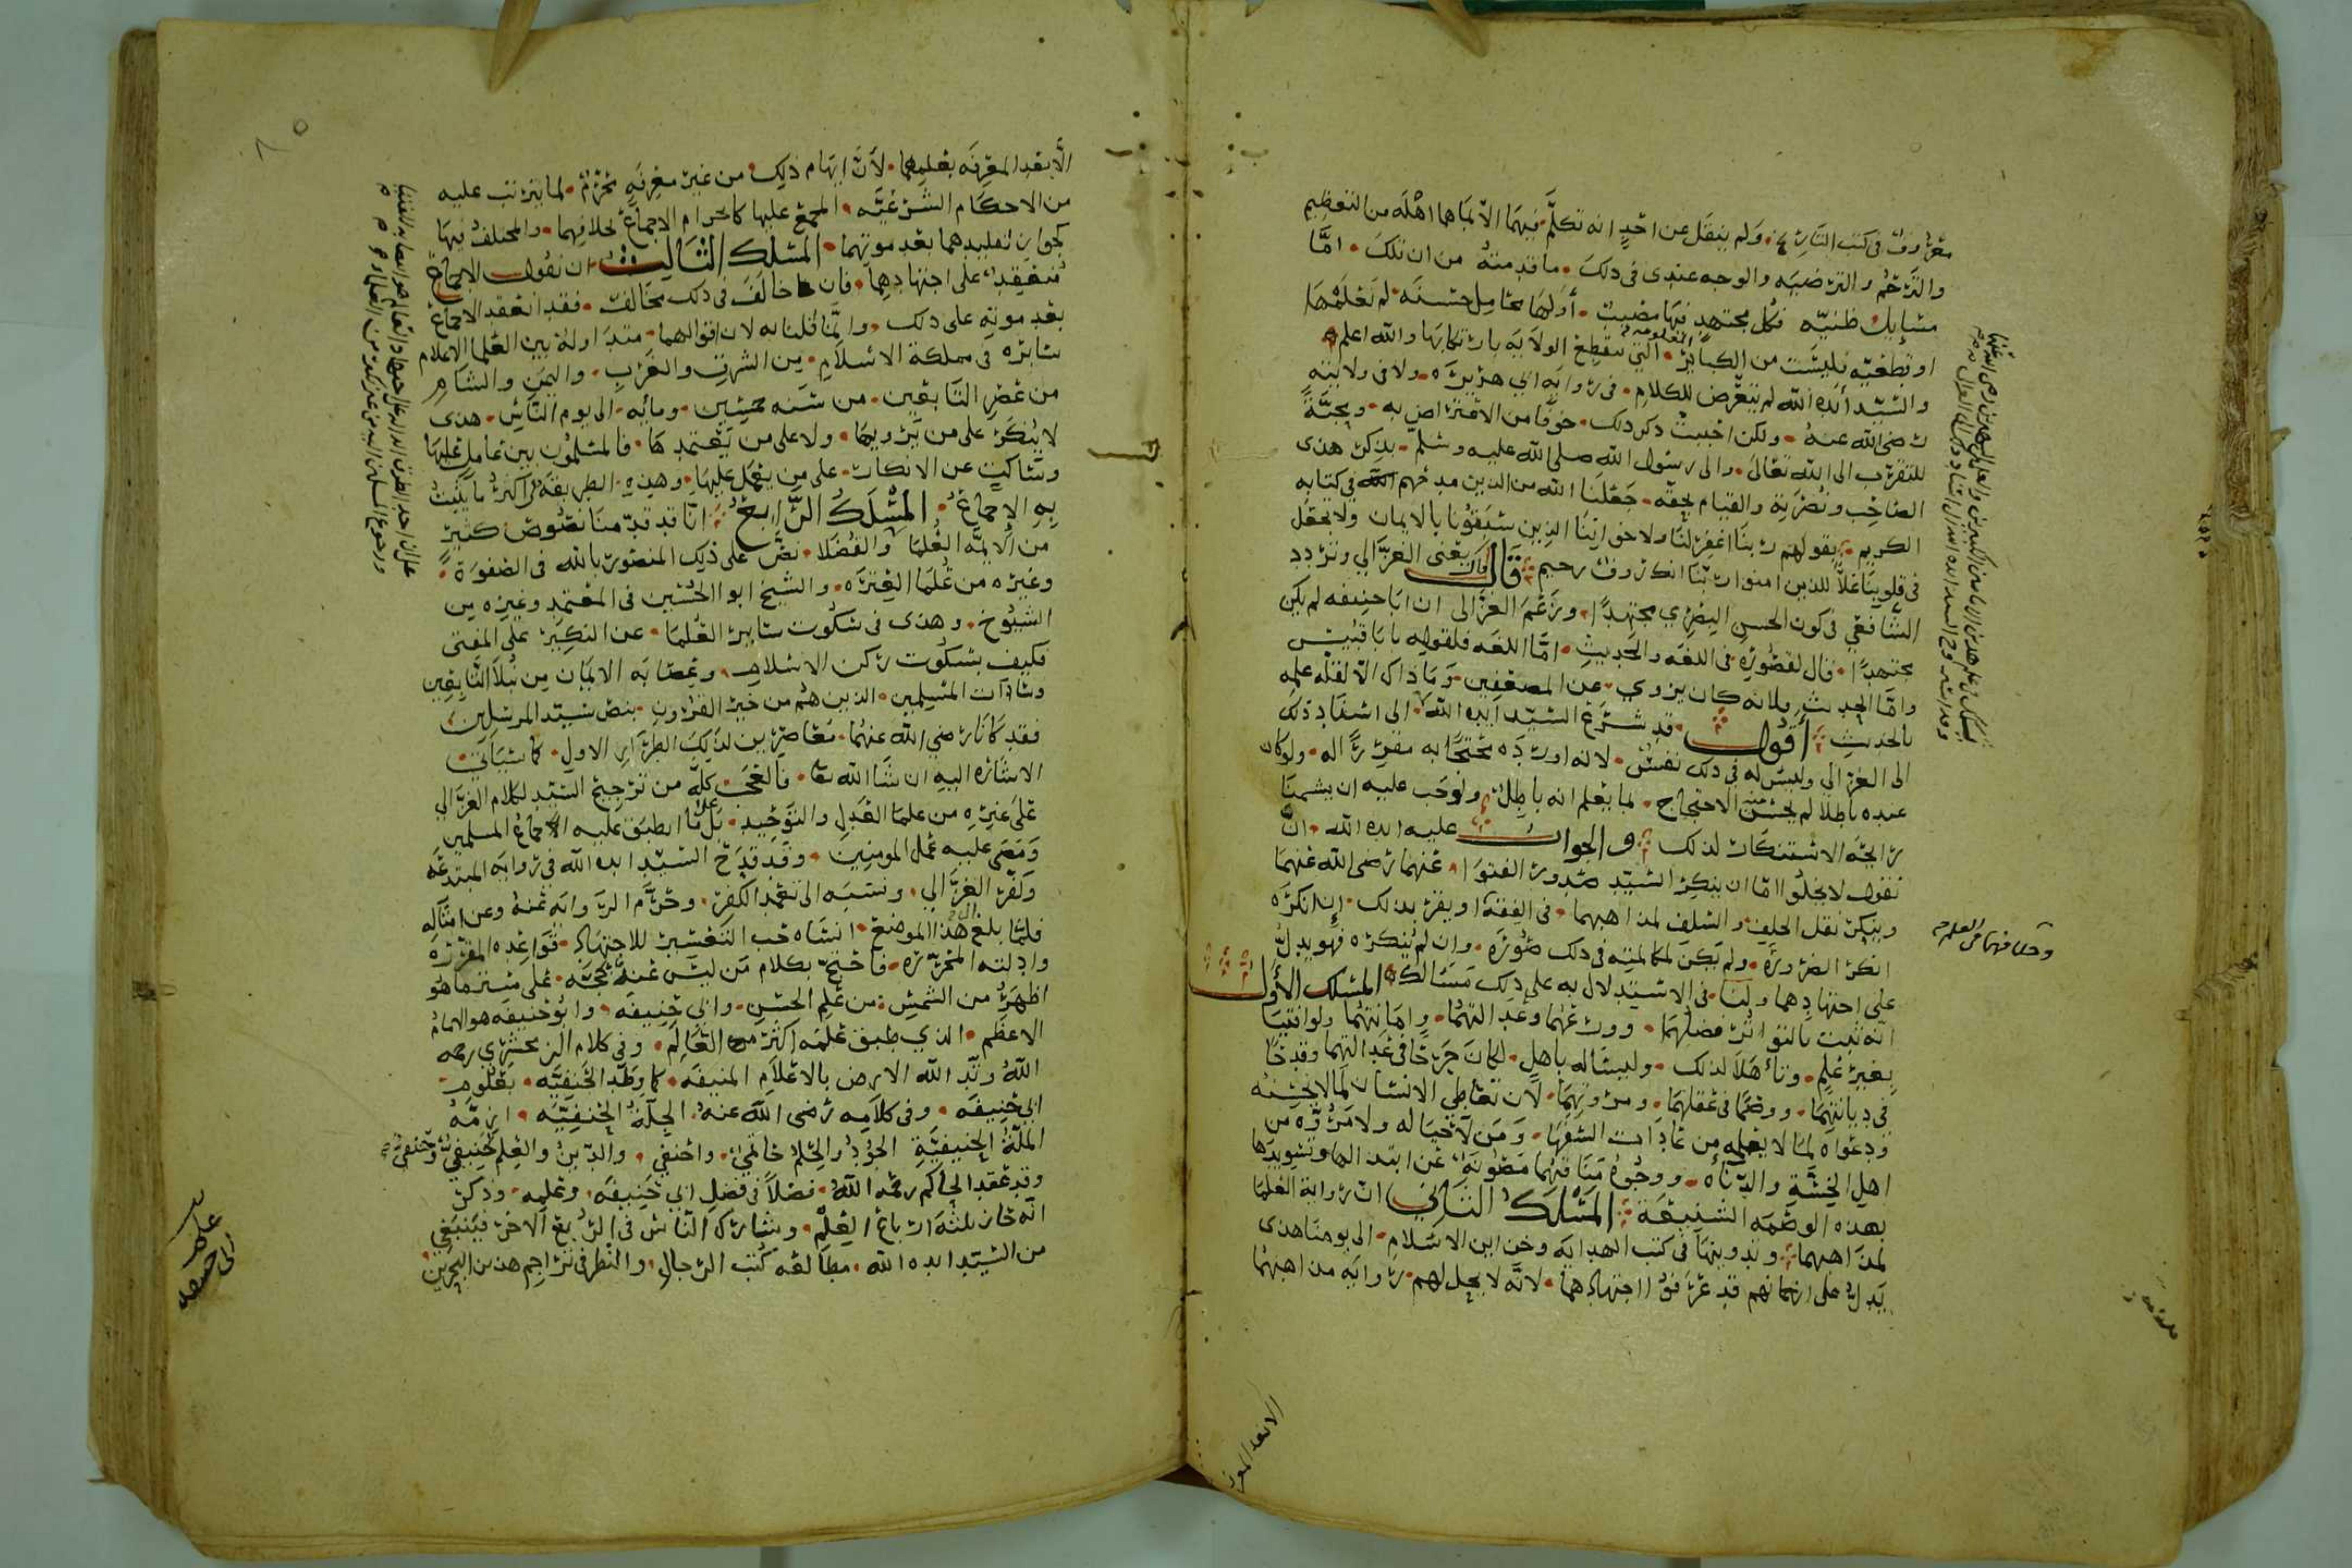 معروف في كتب التاريخ، ولم ينقل عن احدٍ انه تكلّم فيهما الا بما هما اهله من التعظيم
والترحّم والترضيه والوجه عندي في ذلك ما قدمته من ان تلك امّا
مسايل ظنيّه فكل مجتهدٍ فيها مصيبٌ أولها محامل حسنه لم نعلمها
او قطعيه فليست من الكباير التي تقطع الولايه بارتكابها والله اعلم
والسيّد أيده الله لم يتعرّض للكلام في رواية ابي هريره ولا في ولايته
رضي الله عنهُ ولكن احببت ذكر ذلك خوفًا من الاعتراض به ومحبّةً
للتقرب الى الله تعالى والى رسول الله صلى الله عليه وسلم بذكر هذى
الصاحب ونصرته والقيام بحقه جعلنا الله من الذين مدحهم الله في كتابه
الكريم بقولهم ربنا اغفر لنا ولاخواننا الذين سبقونا بالايمان ولا تجعل
في قلوبنا غلاً للذين امنوا ربّنا انك رؤف رحيم قال يعني الغزالي وتردد
الشافعي في كون الحسن البصري مجتهدًا وزعم الغزالى ان ابا حنيفه لم يكن
مجتهدًا قال لقصوره في اللغه والحديث امّا اللغه فلقوله بابا قبيس
وامّا الحديث فلانه كان يروي عن المضعفين وما ذاك الا لقله علمه
بالحديث أقول قد شرّع السّيد ايده الله الى اسناد ذلك
الى الغزالي وليس له في ذلك تنفسٌ لانه اورده محتجًا به مقرّرًا له ولو كان
عنده باطلا لم يحسن منه الاحتجاج بما يعلم انه باطل ولوجب عليه ان يشممنا
رايحة الاستنكار لذلك والجواب عليه ايده الله ان
نقول لا يخلوا اما ان ينكر السّيد صدور الفتوا عنهما رضي الله عنهما
وينكر نقل الخلف والسلف لمذاهبهما في الفقه او يقر بذلك إن انكره
انكر الضرورة ولم يكن لمكالمته في ذلك صورَه وان لم يُنكره فهو يدلّ
على اجتهادهما ولنا في الاستدلال به على ذلك مسالك المسلك الأول
انه ثبت بالتواتر فضلهما وورعهما وعدالتهما وامانتهما ولو افتيا
بغير علم وتأهّلا لذلك وليسا له باهل لكان جرحًا في عدالتهما وقدحًا
في ديانتهما ووصمًا في عقلهما ومروّتهما لان تعاطي الانسان لما لا يحسنه
ودعواه لما لا يعلمه من عادات السفها ومن لا حيا له ولا مروّه من
اهل الخسّة والدنأه ووجوهُ مناقبهما مصونة عن ابتدالها وتسويدها
بهذه الوصمه الشنيعة المسلك الثاني ان رواية العلما
لمذاهبهما وتدوينها في كتب الهدايه وخزاين الاسلام الى يومنا هذى
يدل على انهم قد عرفوا اجتهادهما لانّه لا يحل لهم روايه مذاهبهما
الا بعد المعرفه بعلمهما لأنّ ايهام ذلك من غير معرفهٍ محرّمٌ لما يترتب عليه
من الاحكام الشرعيّه المجمع عليها كانخرام الاجماع بخلافهما والمختلف فيها
كجواز تقليدهما بعد موتهما المسلك الثالث ان نقول الاجماع
منعقد على اجتهادهما فان خالف في ذلك مخالف فقد انعقد الاجماع
بعد موته على ذلك وانّما قلنا به لان اقوالهما متداولة بين العلما الاعلام
سايره في مملكة الاسلام بين الشرق والغرب واليمن والشام
من عصر التابعين من سنه خمسين ومايه الى يوم الناس هذى
لا يُنكر على من يرويها ولا على من يعتمدها فالمسلمون بين عامل عليها
وساكت عن الانكار على من يعمل عليها وهذه الطريقة في اكثر ما يثبت
به الإجماع المسلك الرّابع انّا قد قدّمنا نصوص كثير
من الايمّه العُلما والفضلا نصّ على ذلك المنصور بالله في الصفوة
وغيره من علما العتره والشيخ ابو الحسين في المعتمد وغيره من
الشيوخ وهذى في سكوت ساير العلما عن النكير على المفتى
فكيف بسكوت ركن الاسلام وعصابة الايمان من نبلا التابعين
وسادات المسلمين الذين هم من خير القرون بنص سيّد المرسلين
فقد كانا رضي الله عنهما معاصرين لذلك الطراز الاول كما سياتي
الاشاره اليه ان شا الله تعا فالعجب كلّه من ترجيح السّيد لكلام الغزّالي
على غيره من علما العدل والتوحيد بل على ما انطبق عليه اجماع المسلمين
ومضى عليه عمل المومنين وقد قدح السّيد ايده الله في رواية المبتدعه
وكفّر الغزّالي ونسبه الى تعمد الكفر وحرّم الروايه عنهُ وعن امثاله
فلمّا بلغ هذا الموضع انساه حُب التعسير للاجتهاد قواعده المقرره
وادلته المحرّره فاحتجّ بكلام من ليس عنده بحجّه على ستر ما هو
اظهر من الشمس من علم الحسن وابي حنيفه وابو حنيفه هو الامام
الاعظم الذي طبق علمه اكثر العالم وفي كلام الزمخشري رحمه
اللهُ وتّد الله الارض بالاعلام المنيفه كما وطّد الحنيفيّه بعلوم
ابي حنيفه وفي كلامه رضي الله عنه الجلّة الحنفيّه ازمّة
الملّة الحنيفيّة الجودُ والحلم حاتميّ واحنفيّ والدّينُ والعلم حنيفيّ وحنفيّ
وقد عقد الحاكم رحمه اللهُ فصلاً في فضل ابي حنيفه وعلمه وذكر
انه حاز ثلثة ارباع العلم وشارك الناس في الربع الاخر فينبغي
من السّيد ايده الله مطالعه كُتب الرجال والنظر في تراجم هذين البحرين